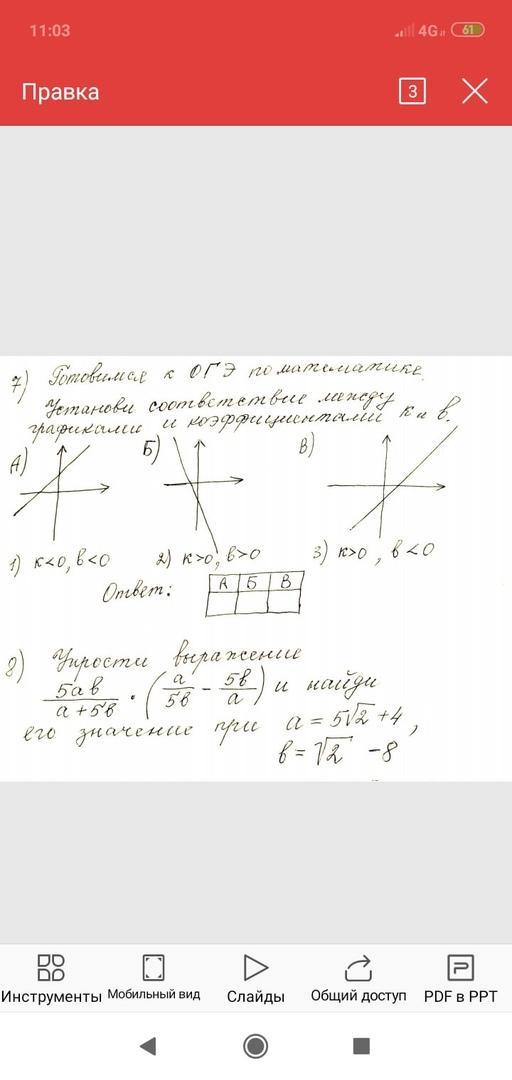 11:03
4G
61
Правка
3
7) Готовимся к ОГЭ по математике.
Установи соответствие между
графиками и коэффициентами к и в.
А)
Б)
В)
1) к<0, в<0
2) к>0, в>0
3) к>0, в<0
Ответ:
А Б В
8) Упрости выражение
5ав/(а+5в) · (а/5в - 5в/а) и найди
его значение при а = 5√2 +4,
в = √2 -8
Инструменты
Мобильный вид
Слайды
Общий доступ
PDF в PPT